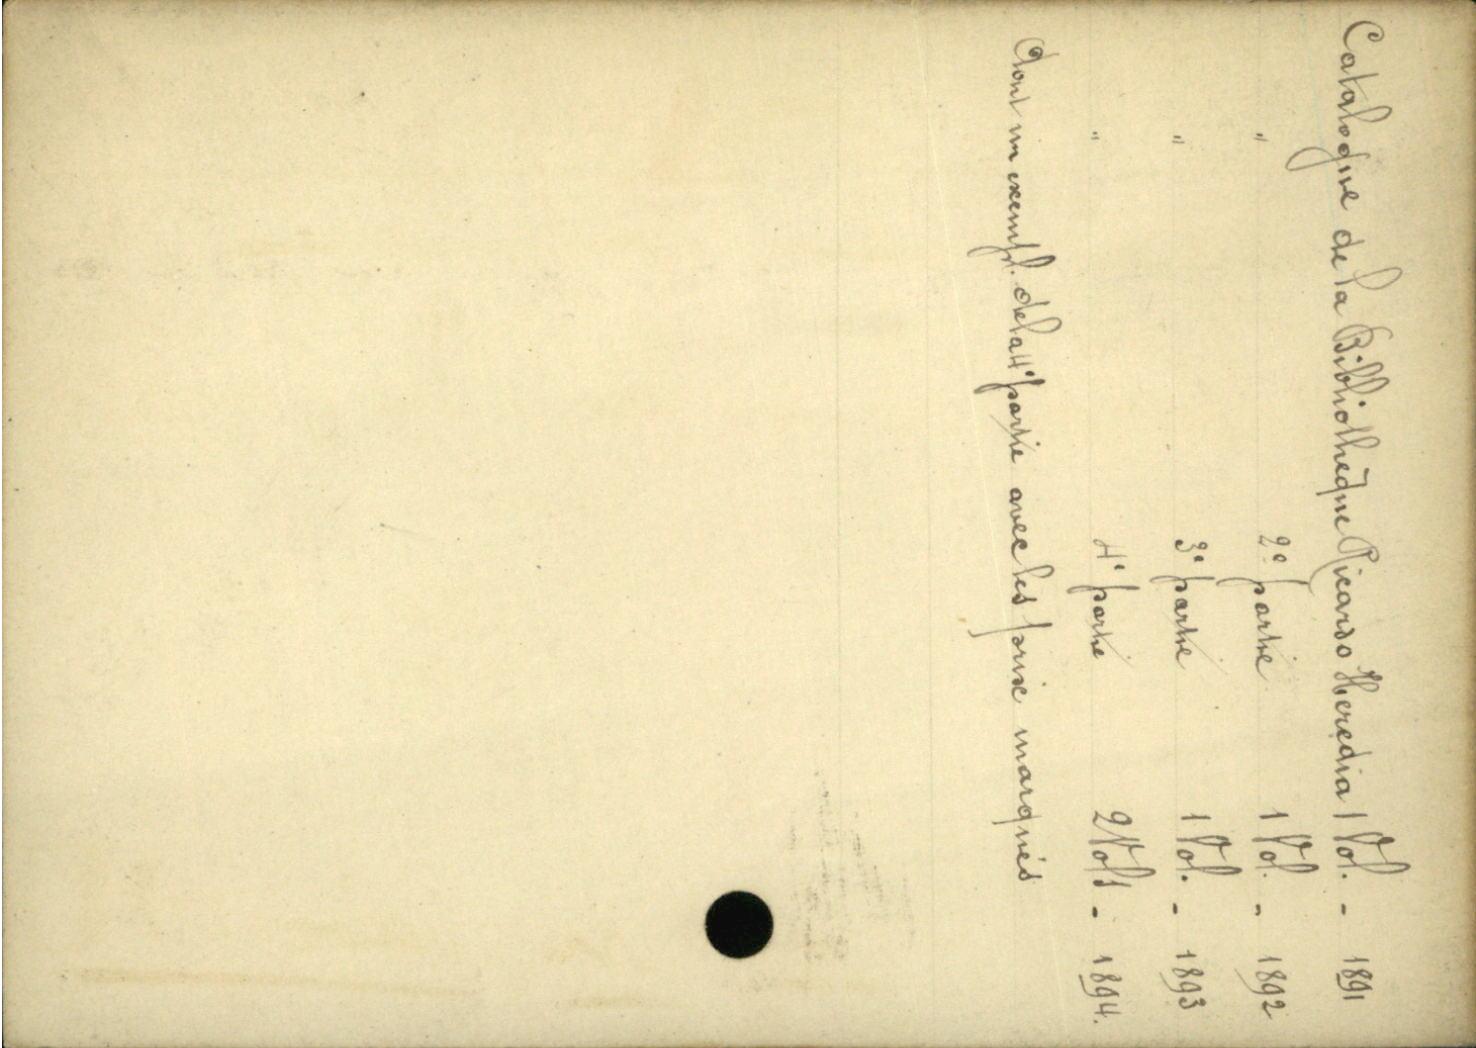 Catalogue de la Bibliothèque Ricardo Heredia 1 Vol. - 1891
" 2e partie 1 Vol. - 1892
" 3e partie 1 Vol. - 1893
" 4e partie 2 Vols - 1894.
dont un exempl. de la 4e partie avec les prix marqués